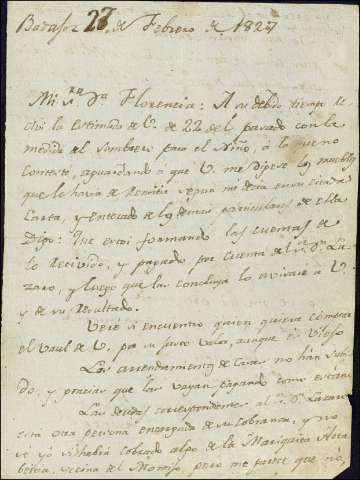 Badajoz 27 de Febrero de 1827
Mi Sra Da Florencia: A su debido tiempo re-
cibi la estimada de V. de 22 del pasado con la
medida del Sombrero para el Niño, à la que no
conteste, aguardando à que V. me dijese los muebles
que le havia de remitir segun me decia en su citada
Carta, y enterado de los demas particulares de ella
Digo: Que estoi formando las cuentas de
lo Recivido, y pagado por cuenta del Sr. Dn. La-
zaro, y luego que las concluya lo avisare à V.
y de su resultado.
Veré si encuentro quien quiera comprar
el Vaul de V. por su justo valor, aunque es Viejo
Los arrendamientos de Casas no han subi-
do, y gracias que las vayan pagando como estan
Las deudas correspondientes al Sr. Dn. Lazaro
está otra persona encargada de su cobranza, y no
se yó si habrá cobrado algo de la Mariquita
vecina del Montijo, pero me parece que no,